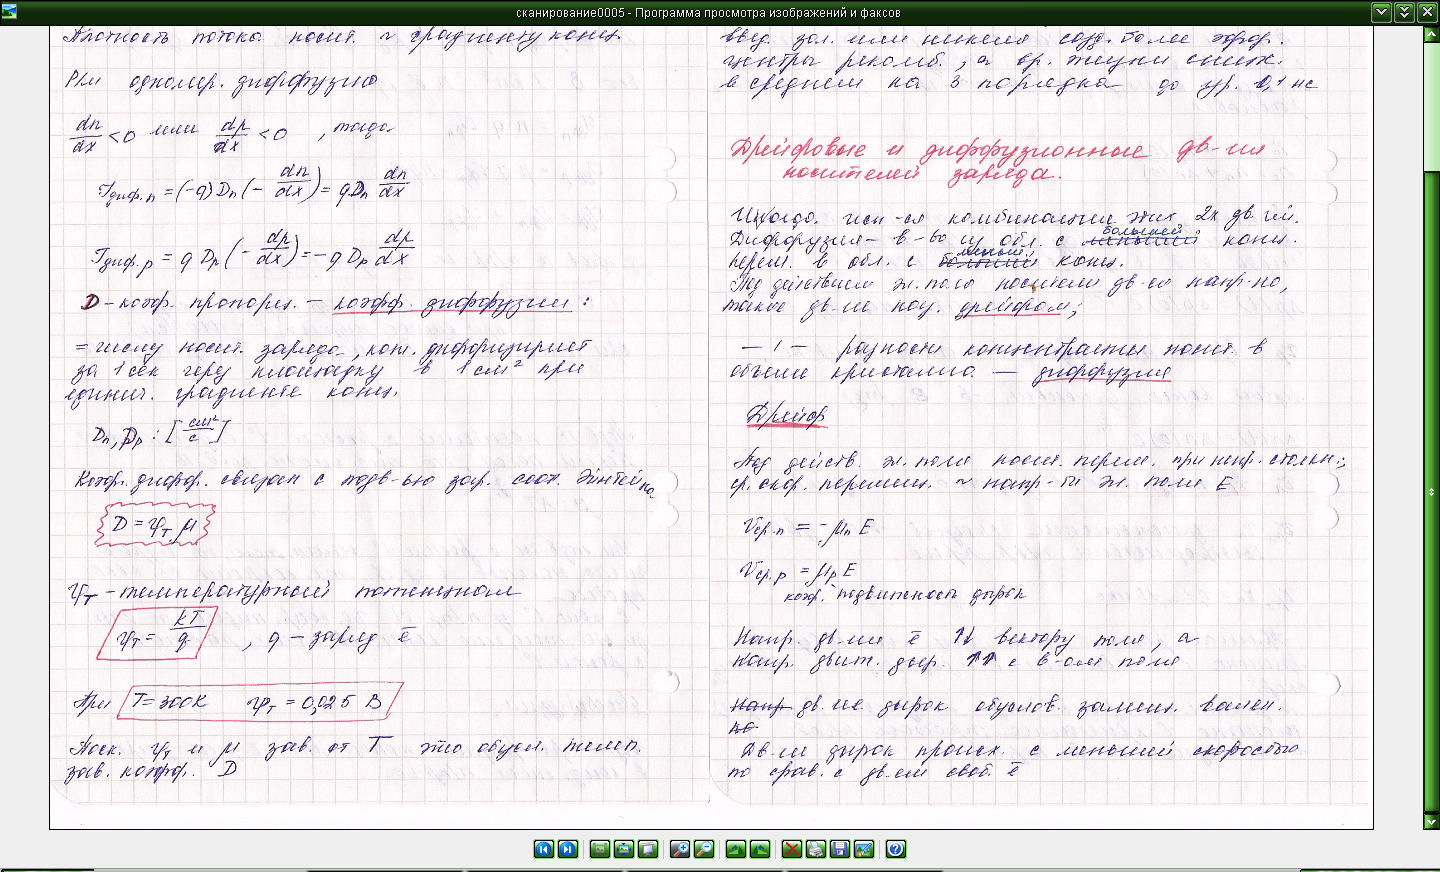 сканирование0005 - Программа просмотра изображений и факсов
Плотность потока носит. ~ градиенту конц.
При одномер. диффузию
dn/dx < 0 или dp/dx < 0 , тогда
Jдиф.n = (-q) Dn (- dn/dx) = q Dn dn/dx
Jдиф.p = q Dp (- dp/dx) = - q Dp dp/dx
D - коэф. пропорц. – коэфф. диффузии :
= числу носит. заряда, кот. диффундирует
за 1 сек через площадку в 1 см² при
единич. градиенте конц.
Dn, Dp : [см²/с]
Коэф. диффуз. связан с подв-ью зар. соот. Эйнтейна
D = φT μ
φT - температурный потенциал
φT = kT/q , q – заряд ē
При T = 300К φT = 0,025 В
Поск. φT и μ зав. от T это обусл. темп.
зав. коэфф. D
введ. зол. или никеля созд. более эффект.
центры рекомб., а вр. жизни сниж.
в среднем на 3 порядка до ур. 0,1 нс
Дрейфовые и диффузионные дв-ия
носителей заряда.
Иногда исп-ся комбинация этих 2х дв-ий.
большей
Диффузия – в-во из обл. с меньшей конц.
меньш.
перем. в обл. с большей конц.
Под действием эл. поля носители дв-ся напр-но,
такое дв-ие наз. дрейфом;
– " – разности концентрации носит. в
объёме кристалла – диффузия
Дрейф
Под действ. эл. поля носит. перем. при непр. столкн.;
ср. скор. перемещ. ~ напр-ти эл. поля E
Vср.n = -μn E
Vср.p = μp E
коэф. подвижность дырок
Напр. дв-ия ē ↑↓ вектору поля, а
напр. движ. дыр. ↑↑ с в-ом поля
Напр дв-ие дырок обуслов. замещ. вален.
не
Дв-ие дырок происх. с меньшей скоростью
по срав. с дв-ем своб. ē